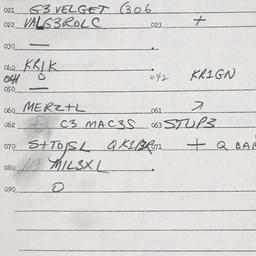 021 G3VELGET (306
022 VALG3ROLC 023 +
030 —
040 KRIK
041 O 042 KR1GN
050 —
060 MERZ+L 061 >
062 C3 MAC3S 063 STUP3
070 S+TOJSL QK1B3R 071 + Q BAR
080 M1L3XL
090 O